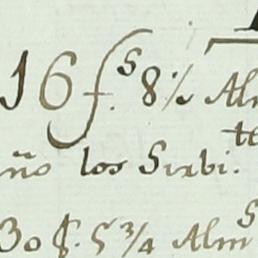 16 fs. 8 ½ Alm
te
ño los Sirbi.
30 f. 5 3/4 Alms